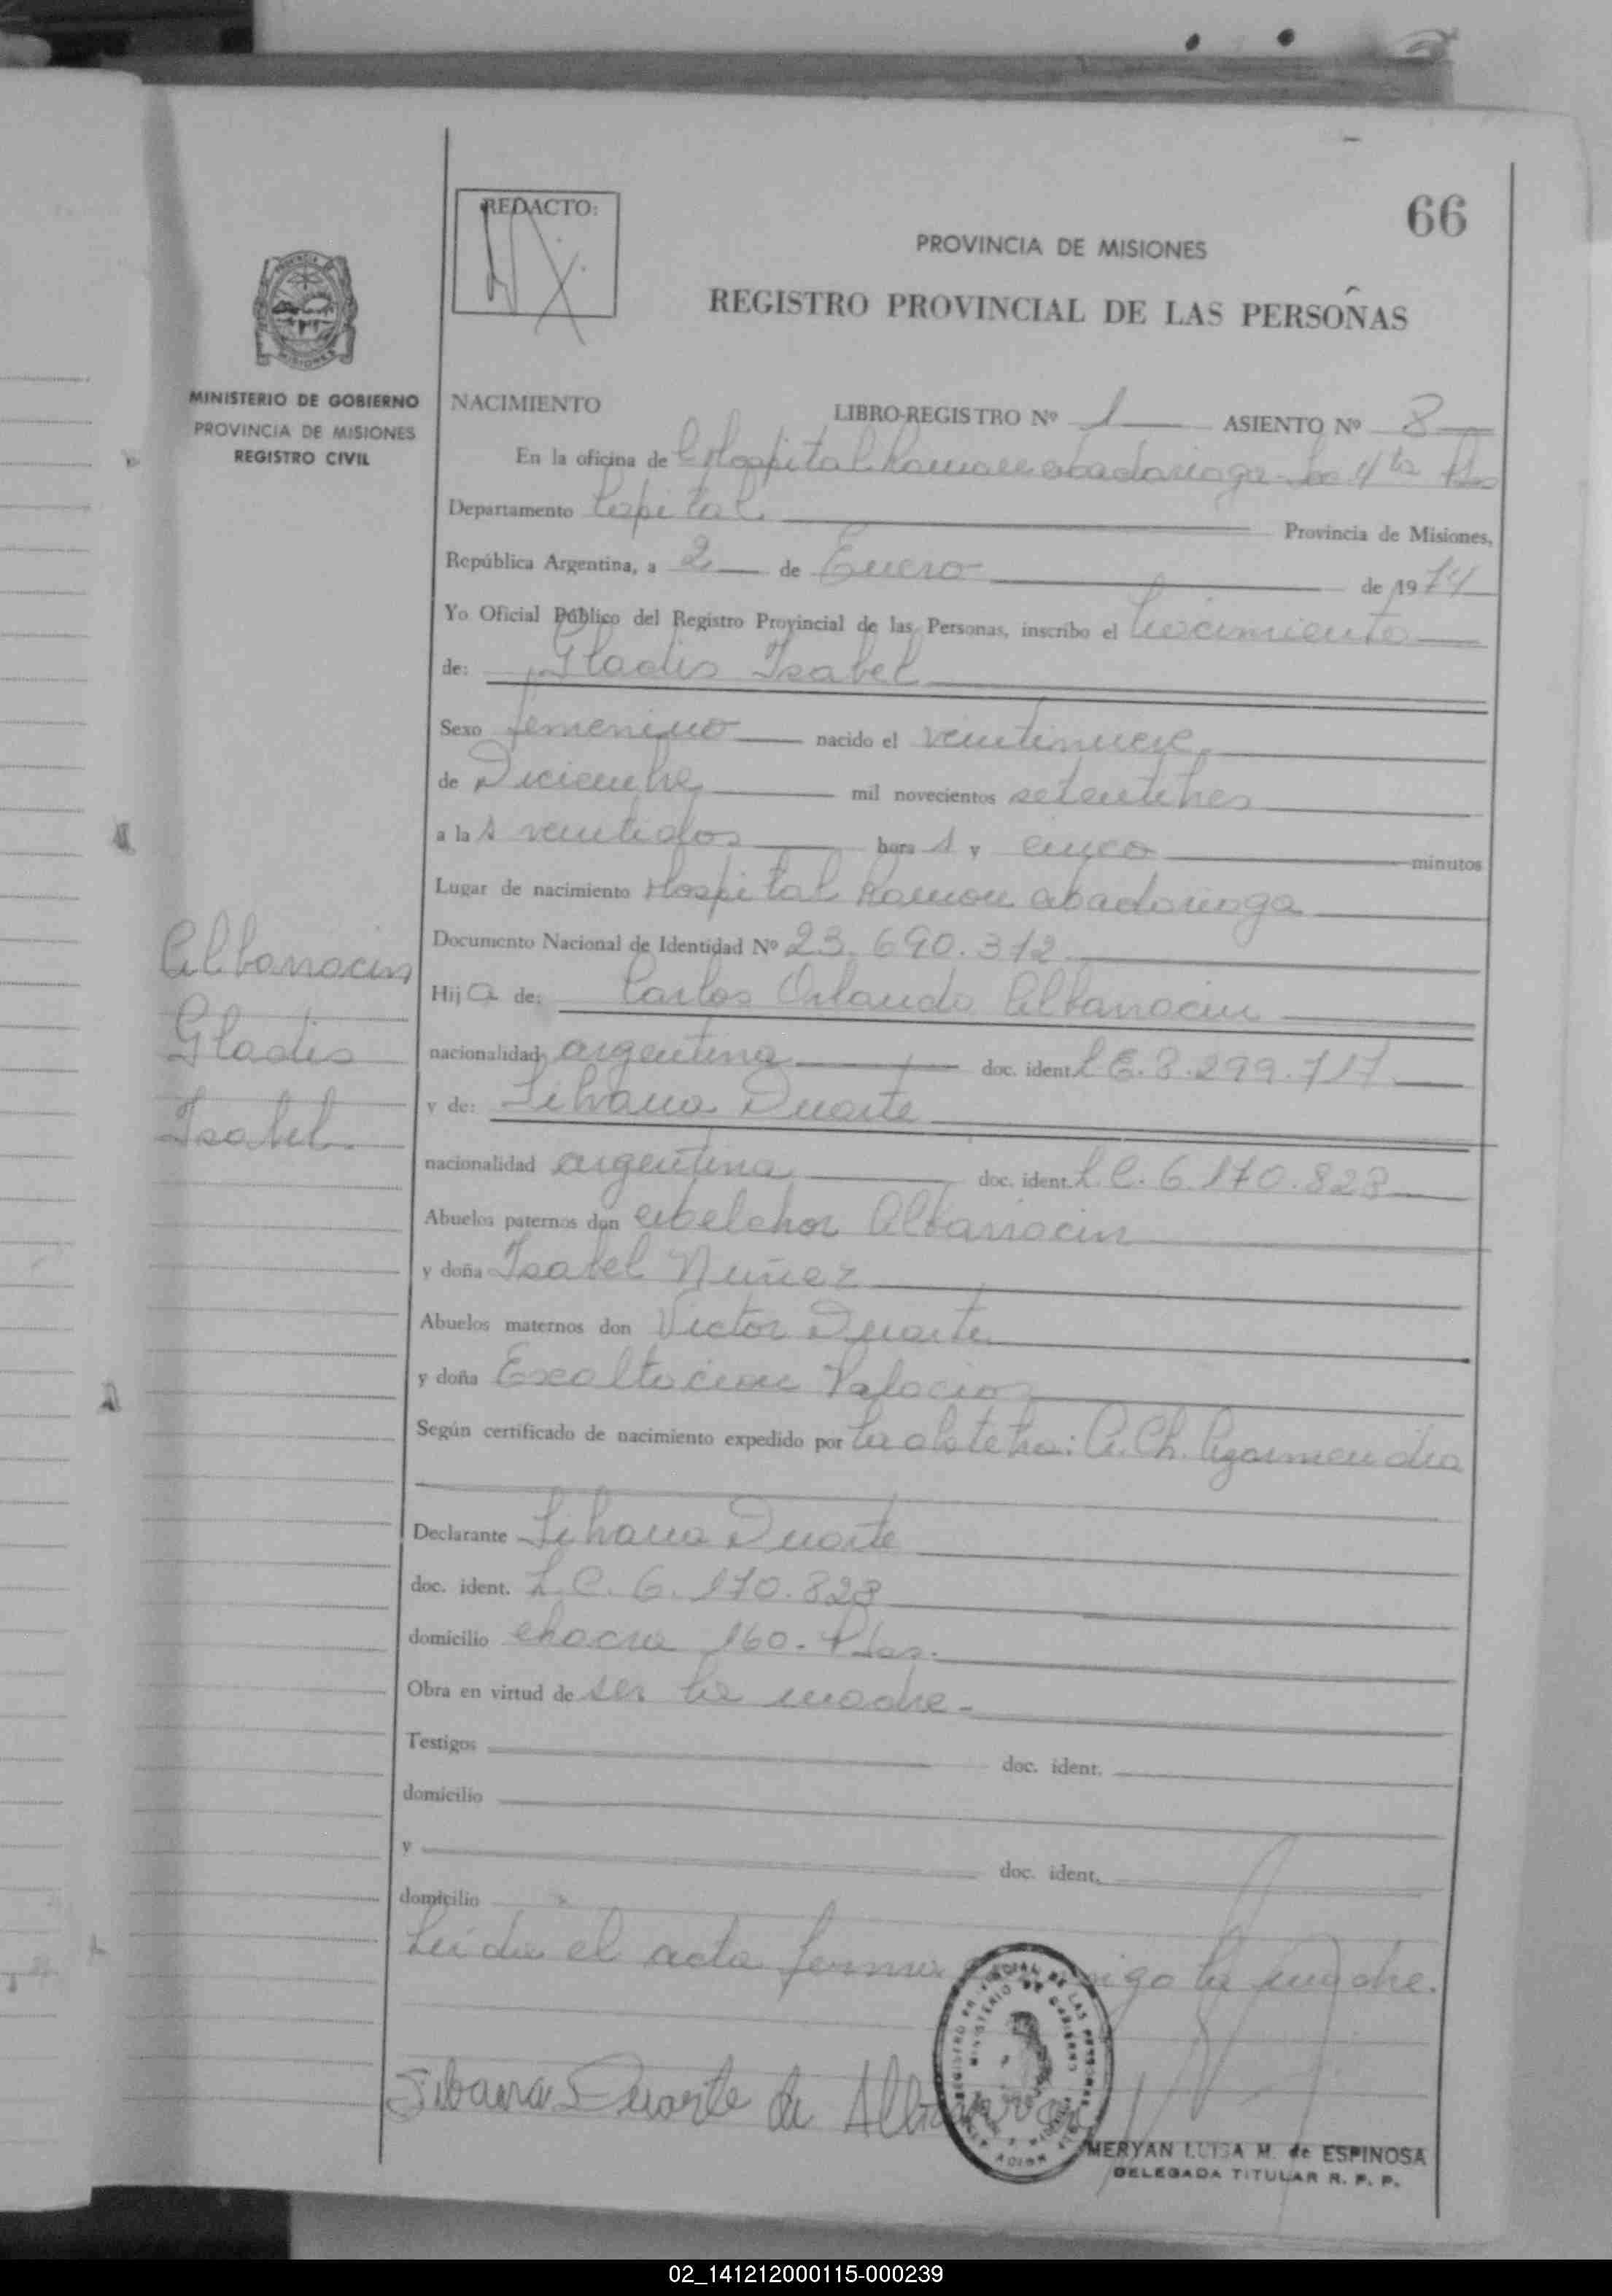 66
REDACTO:
PROVINCIA DE MISIONES
REGISTRO PROVINCIAL DE LAS PERSONAS
MINISTERIO DE GOBIERNO
PROVINCIA DE MISIONES
REGISTRO CIVIL
NACIMIENTO LIBRO-REGISTRO Nº 1 ASIENTO Nº 8
En la oficina de Hospital Ramon Madariaga
Departamento Capital Provincia de Misiones,
República Argentina, a 2 de Enero de 1974
Yo Oficial Público del Registro Provincial de las Personas, inscribo el nacimiento
de: Gladis Isabel
Sexo femenino nacido el veintinueve
de Diciembre mil novecientos setentitres
a las veintidos horas y cinco minutos
Lugar de nacimiento Hospital Ramon Madariaga
Documento Nacional de Identidad Nº 23.690.312
Albarracin
Gladis
Isabel
Hija de: Carlos Orlando Albarracin
nacionalidad argentina doc. ident. L.E. 8.299.717
y de: Silvana Duarte
nacionalidad argentina doc. ident. L.C. 6.170.828
Abuelos paternos don Melchor Albarracin
y doña Isabel Nuñez
Abuelos maternos don Victor Duarte
y doña Exaltacion Palacio
Según certificado de nacimiento expedido por la obstetra: A. Ch.
Declarante Silvana Duarte
doc. ident. L.C. 6.170.828
domicilio chacra 160. Pdas.
Obra en virtud de ser la madre
Testigos doc. ident.
domicilio
y doc. ident.
domicilio
Leida el acta firma la madre.
Silvana Duarte de
MERYAN LUISA M. de ESPINOSA
DELEGADA TITULAR R. P. P.
02_141212000115-000239